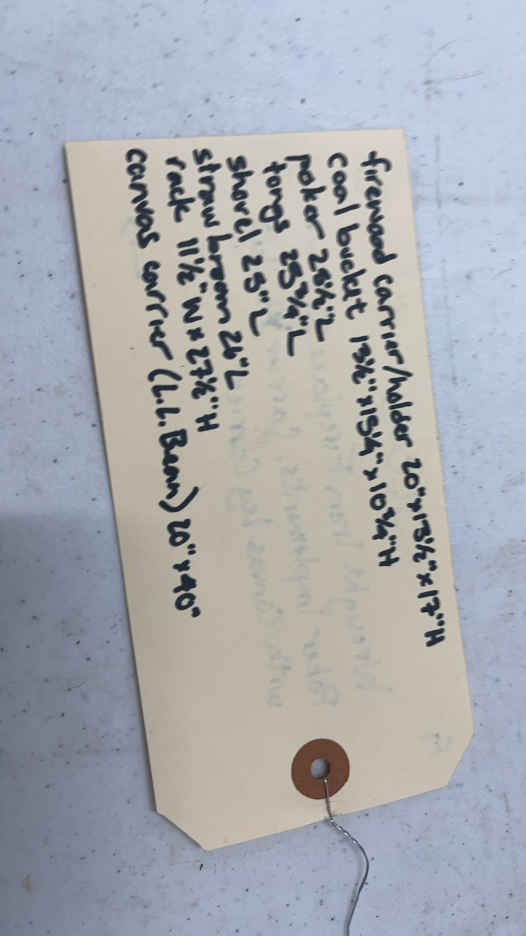 firewood carrier/holder 20"x15½"x17"H
coal bucket 15½"x15¼"x10¾"H
poker 25½"L
tongs 25¾"L
shovel 25"L
straw broom 26"L
rack 11½"W x 27½"H
canvas carrier (L.L. Bean) 20"x40"